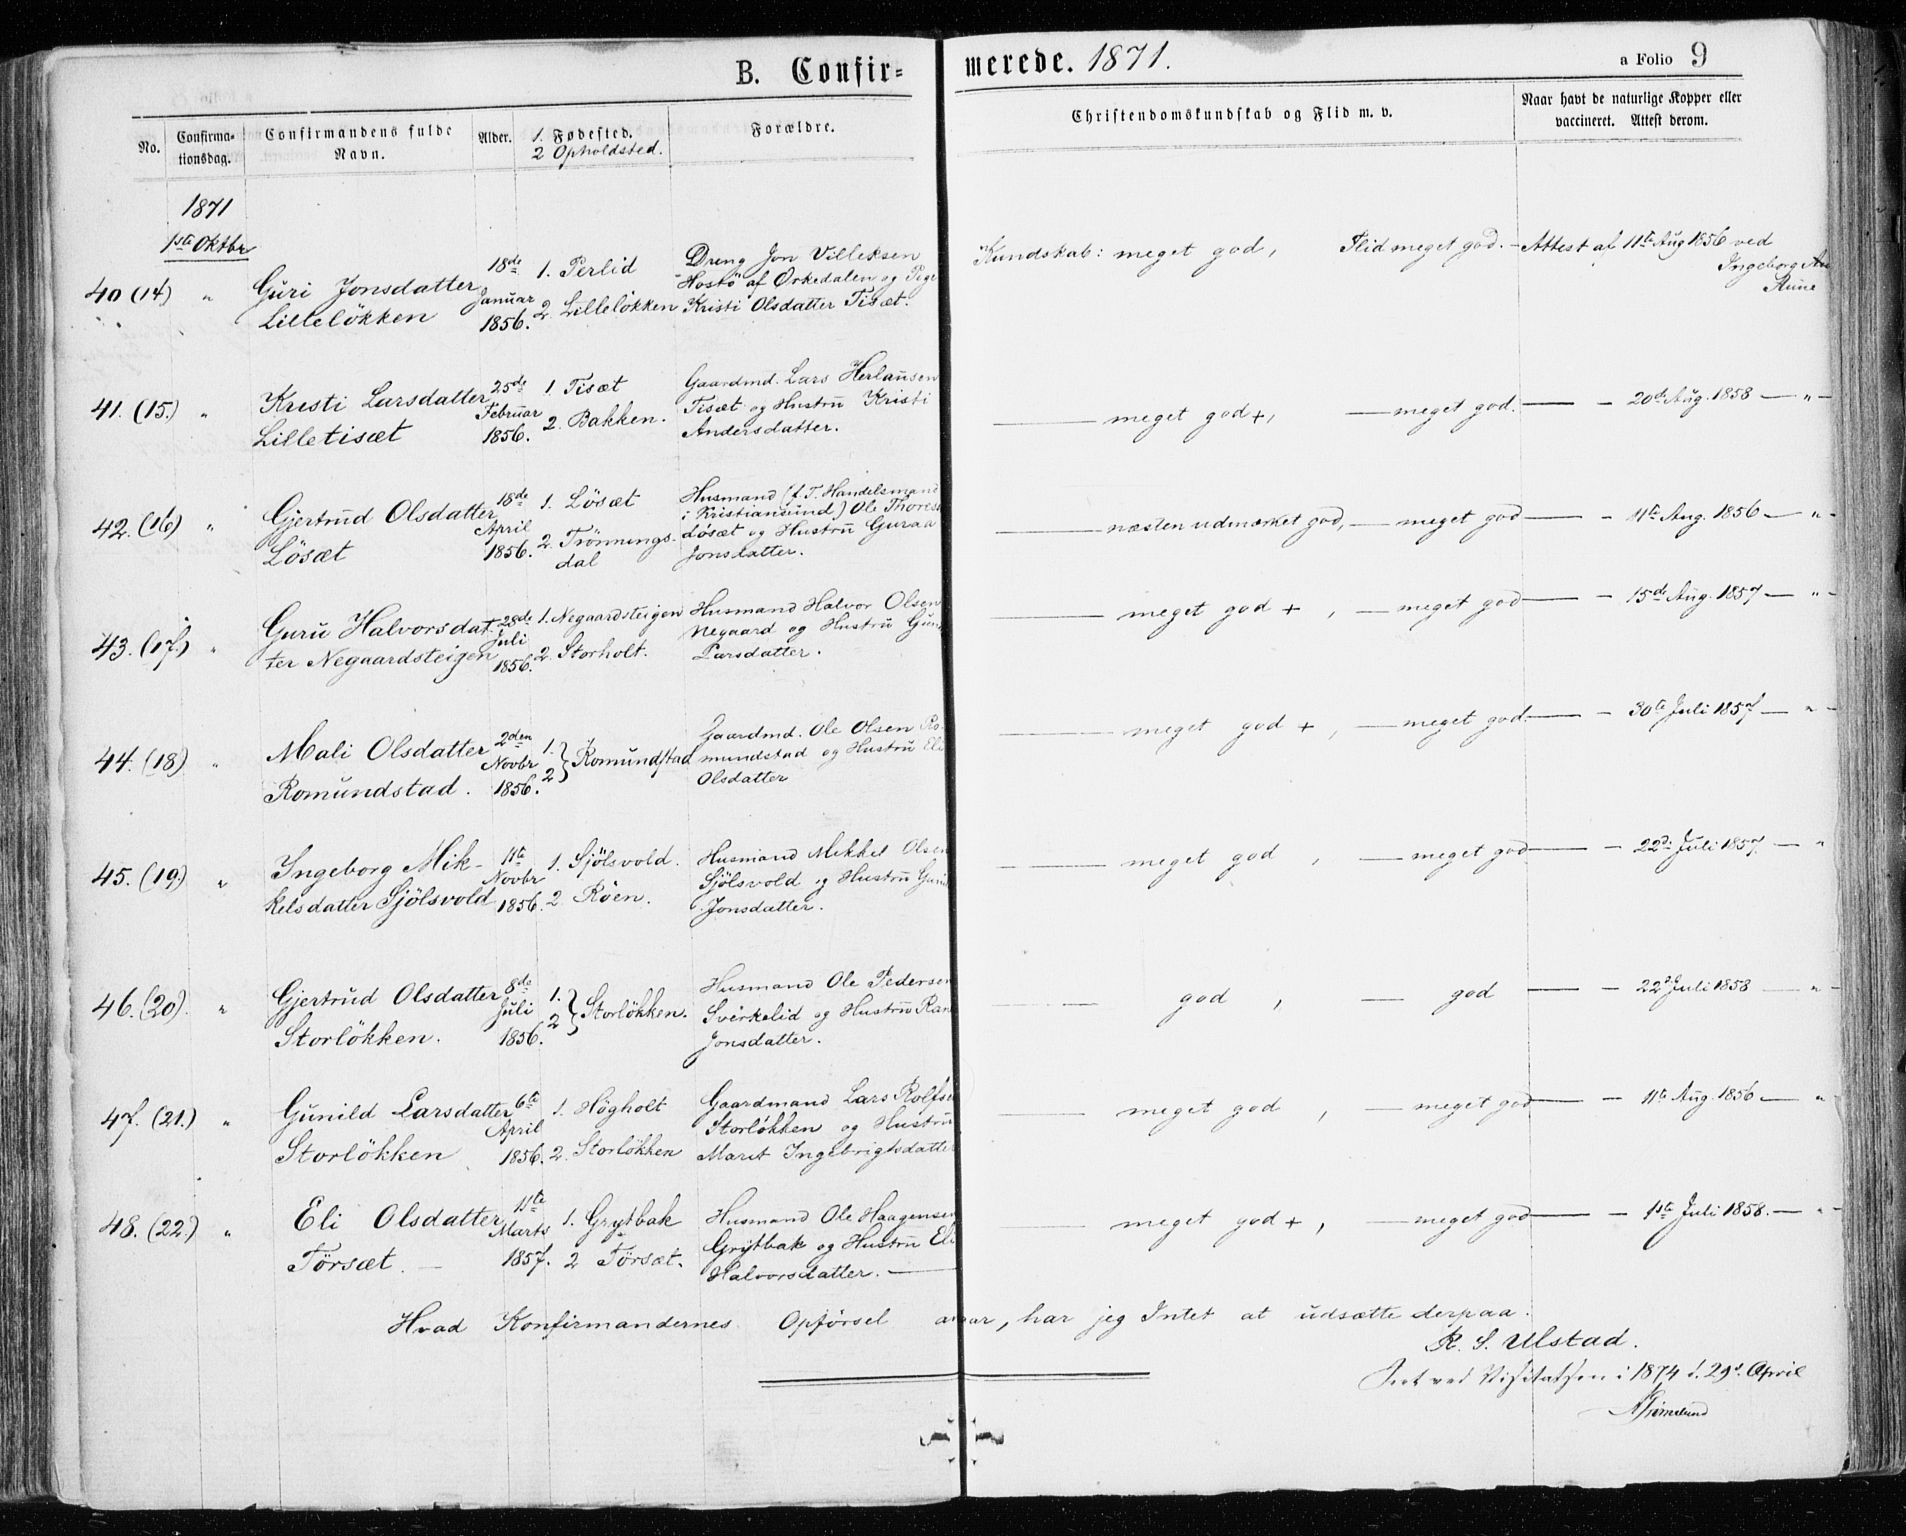 B. Confir=
merede. 1871.
a Folio 9
No.
Confirma-
tionsdag.
Confirmandens fulde
Navn.
Alder.
1. Fødested.
2 Opholdsted.
Forældre.
Christendomskundskab og Flid m. v.
Naar havt de naturlige Kopper eller
vaccineret. Attest derom.
1871
1ste Oktbr
40 (14) "
Guri Jonsdatter
Lilleløkken
18de
Januar
1856.
1. Perlid
2. Lilleløkken
Dreng Jon Villeksen
Hostö af Orkedalen og Pige
Kristi Olsdatter Tisæt.
Kundskab: meget god, Flid meget god. - Attest af 11te Aug 1856 ved
Ingeborg An
Aune
41. (15.) "
Kristi Larsdatter
Lilletisæt
25de
Februar
1856.
1. Tisæt
2. Bakken.
Gaardmd. Lars Herlausen
Tisæt og Hustru Kristi
Andersdatter.
— meget god +, — meget god. — - 20de Aug. 1858 — " -
42. (16) "
Gjertrud Olsdatter
Løsæt
18de
April
1856.
1. Løsæt
2. Trønnings-
dal
Husmand (f. T. Handelsmand
i Kristiansund) Ole Thores
Løsæt og Hustru Guraa
Jonsdatter.
— næsten udmærket god, — meget god — - 11te Aug. 1856 — " -
43. (17.) "
Guru Halvorsdat-
ter Negaardsteigen
28de
Juli
1856.
1. Negaardsteigen
2. Storholt.
Husmand Halvor Olsen
Negaard og Hustru Guni
Larsdatter.
— meget god + , — meget god — - 15de Aug. 1857 — " -
44. (18) "
Mali Olsdatter
Romundstad.
2den
Novbr
1856.
1.
2 } Romundstad
Gaardmd. Ole Olsen Ro-
mundstad og Hustru Eli
Olsdatter
— meget god + , — meget god — - 30te Juli 1857 — " -
45. (19.) "
Ingeborg Mik-
kelsdatter Sjölsvold
11te
Novbr
1856.
1. Sjölsvold.
2. Röen.
Husmand Mikkel Olsen
Sjölsvold og Hustru Guri
Jonsdatter.
— meget god , — meget god — - 22d. Juli 1857. — "
46. (20). "
Gjertrud Olsdatter
Storløkken.
8de
Juli
1856.
1.
2 } Storløkken.
Husmand Ole Pedersen
Svirkelid og Hustru Ran
Jonsdatter.
— god , — god — - 22d Juli 1858 — " -
47. (21.) "
Gunild Larsdatter
Storløkken
6te
April
1856.
1. Högholt
2. Storløkken
Gaardmand Lars Rolfse
Storløkken og Hustru
Marit Ingebrigtsdatter
— meget god , — meget god — - 11te Aug. 1856 — "
48. (22.) "
Eli Olsdatter
Törsæt. —
11te
Marts
1857.
1. Grytbak
2 Törsæt.
Husmand Ole Haagensen
Grytbak og Hustru Eli
Halvorsdatter. —
— meget god + , — meget god — - 1ste Juli 1858. — " -
Hvad Konfirmandernes Opförsel angaar, har jeg Intet at udsætte derpaa.
R. S. Ulstad.
Seet ved Visitatsen i 1874 d. 29d. April